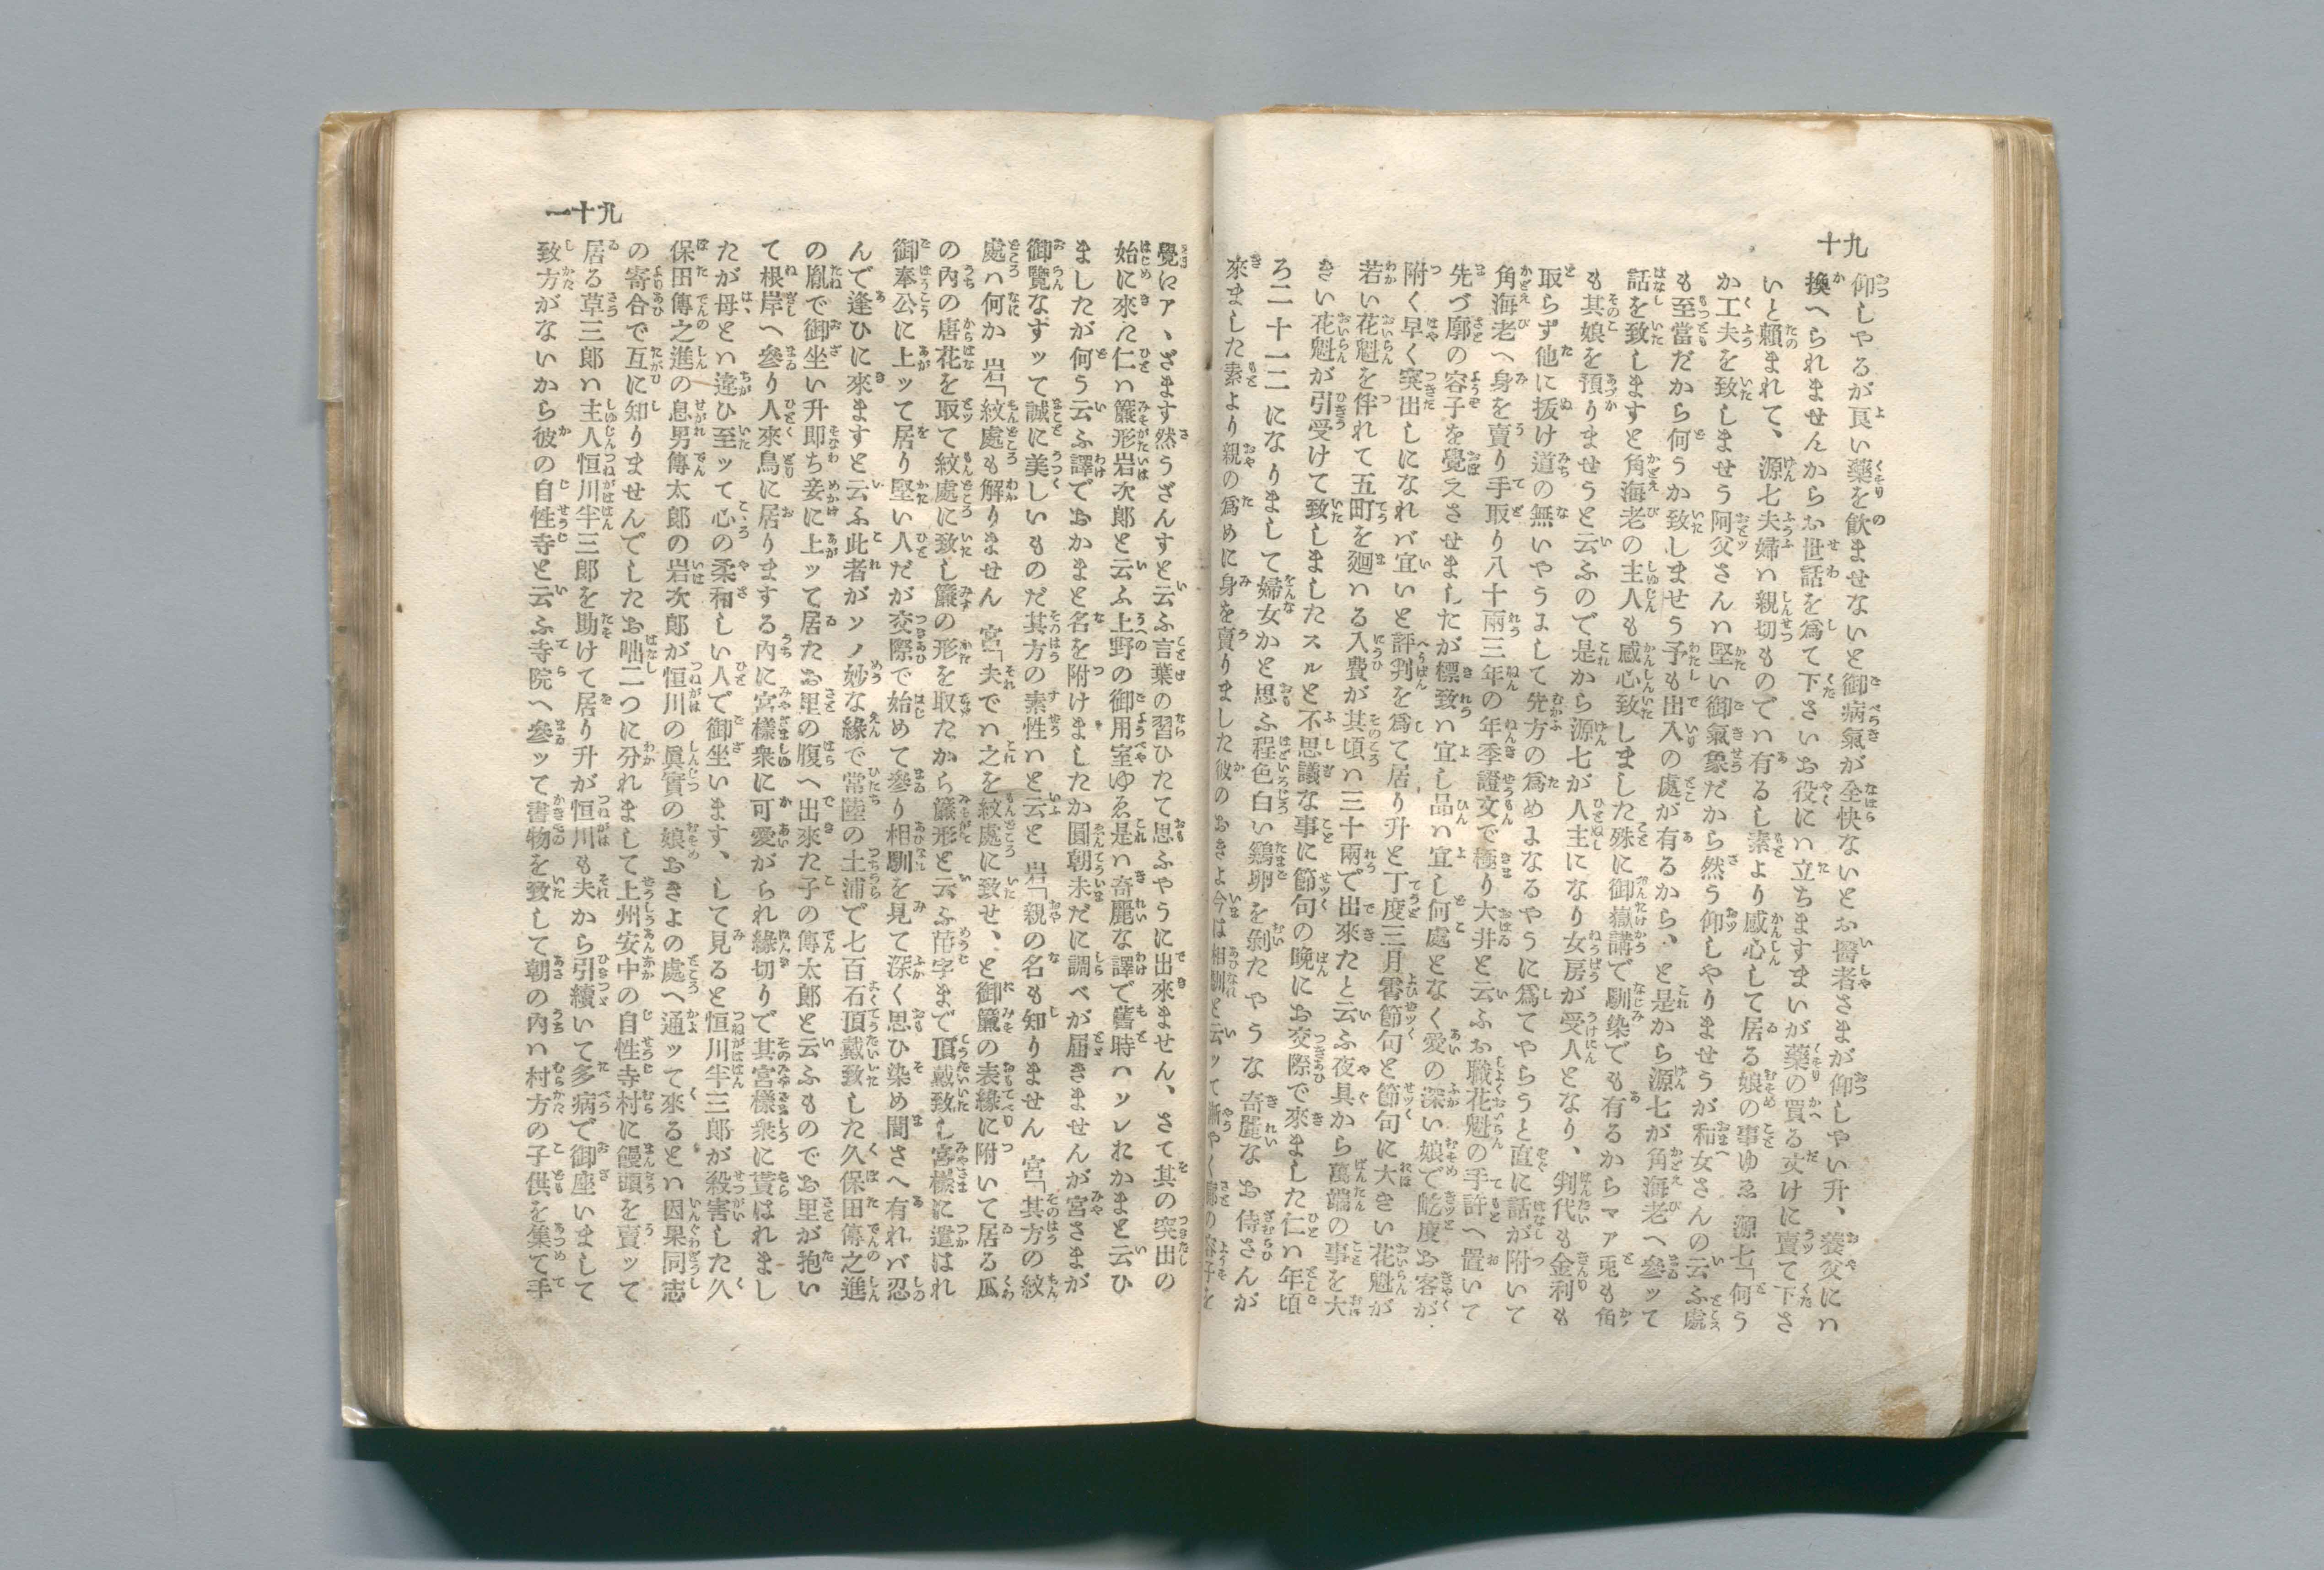 九十
仰しやるが良い藥を飮ませないと御病氣が全快ないとお醫者さまが仰しやい升、養父にハ
換へられませんからお世話を爲て下さいお役にハ立ちますまいが藥の買る丈けに賣て下さ
いと賴まれて、源七夫婦ハ親切ものでハ有るし素より感心して居る娘の事ゆゑ 源七「何う
か工夫を致しませう阿父さんハ堅い御氣象だから然う仰しやりませうが和女さんの云ふ處
も至當だから何うか致しませう予も出入の處が有るから、と是から源七が角海老へ參ッて
話を致しますと角海老の主人も感心致しました殊に御嶽講で馴染でも有るからマア兎も角
も其娘を預りませうと云ふので是から源七が人主になり女房が受人となり、判代も金利も
取らず他に拔け道の無いやうまして先方の爲めまなるやうに爲てやらうと直に話が附いて
角海老へ身を賣り手取り八十兩三年の年季證文で極り大井と云ふお職花魁の手許へ置いて
先づ廓の容子を覺えさせましたが標致ハ宜し品ハ宜し何處となく愛の深い娘で屹度お客が
附く早く突出しになれバ宜いと評判を爲て居り升と丁度三月雛節句と節句に大きい花魁が
若い花魁を伴れて五町を廻ハる入費が其頃ハ三十兩で出來たと云ふ夜具から萬端の事を大
きい花魁が引受けて致しましたスルと不思議な事に節句の晩にお交際で來ました仁ハ年頃
ろ二十一二になりまして婦女かと思ふ程色白い鷄卵を剝たやうな奇麗なお侍さんが
來ました素より親の爲めに身を賣りました彼のおきよ今は相馴と云ッて漸やく廓の容子を
九十一
覺にア、ざます然うざんすと云ふ言葉の習ひたて思ふやうに出來ません、さて其の突出の
始に來た仁ハ簾形岩次郎と云ふ上野の御用室ゆゑ是ハ奇麗な譯で舊時ハソレおかまと云ひ
ましたが何う云ふ譯でおかまと名を附けましたか圓朝未だに調べが屆きませんが宮さまが
御覽なすッて誠に美しいものだ其方の素性ハと云と 岩「親の名も知りません 宮「其方の紋
處ハ何か 岩「紋處も解りません 宮「夫でハ之を紋處に致せ、と御簾の表緣に附いて居る瓜
の內の唐花を取て紋處に致し簾の形を取たから簾形と云ふ苗字まで頂戴致し宮樣に遣はれ
御奉公に上ッて居り堅い人だが交際で始めて參り相馴を見て深く思ひ染め閨さへ有れバ忍
んで逢ひに來ますと云ふ此者がソノ妙な緣で常陸の土浦で七百石頂戴致した久保田傳之進
の胤で御坐い升卽ち妾に上ッて居たお里の腹へ出來た子の傳太郎と云ふものでお里が抱い
て根岸へ參り人來鳥に居りまする內に宮樣衆に可愛がられ緣切りで其宮樣衆に貰はれまし
たが母とハ違ひ至ッて心の柔和しい人で御坐います、して見ると恒川半三郎が殺害した久
保田傳之進の息男傳太郎の岩次郎が恒川の眞實の娘おきよの處へ通ッて來るとハ因果同志
の寄合で互に知りませんでしたお咄二つに分れまして上州安中の自性寺村に饅頭を賣ッて
居る草三郎ハ主人恒川半三郎を助けて居り升が恒川も夫から引續いて多病で御座いまして
致方がないから彼の自性寺と云ふ寺院へ參ッて書物を致して朝の內ハ村方の子供を集て手